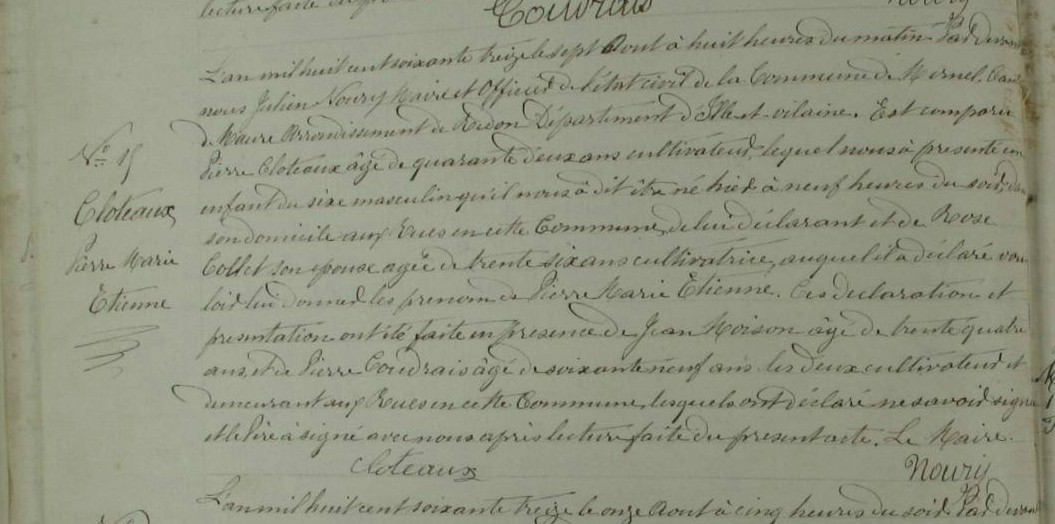 lecture faite du
Coudrais Noury
L'an mil huit cent soixante treize le sept Aout à huit heures du matin Par devant
nous Julien Noury Maire et Officier de l'état civil de la Commune de Mernel. Canton
de Maure Arrondissement de Redon Département d'Ille-et-vilaine. Est comparu
Pierre Cloteaux âgé de quarante deux ans cultivateur, lequel nous à presenté un
enfant du sixe masculin qu'il nous à dit être né hier à neuf heures du soir, dans
son domicile aux Rues en cette Commune, de lui déclarant et de Rose
Collet son epouse agée de trente six ans cultivatrice, auquel il a déclaré vou-
loir lui donner les prenom de Pierre Marie Etienne. Ces declaration et
presentation ont été faite en presence de Jean Moison âgé de trente quatre
ans, et de Pierre Coudrais âgé de soixante neuf ans les deux cultivateur et
demeurant aux Rues en cette Commune, lesquels ont déclaré ne savoir signer
et le Père à signé avec nous après lecture faite du present acte. Le Maire.
Cloteaux Noury
N° 15
Cloteaux
Pierre Marie
Etienne
L'an mil huit cent soixante treize le onze Aout à cinq heures du soir Par devant